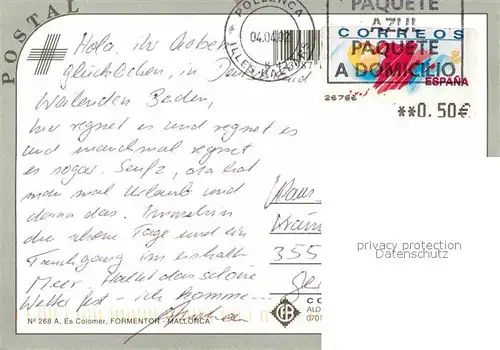 POSTAL
POLLENCA
04.04.02
ILLES BALEARS
PAQUETE
AZUL
PAQUETE
A DOMICILIO
CORREOS
ESPAÑA
26766
**0.50€
Hola, ihr
glücklichen, in
Weilenden Baden,
hier regnet es und regnet es
und manchmal regnet
es sogar. Seufz, da hat
man mal Urlaub und
dann das. Immerhin
die schöne Tage und ein
Tauchgang im eiskalten
Meer. Haltet das schöne
Wetter fest - ich komme...
Klaus
355
privacy protection
Datenschutz
Nº 268 A. Es Colomer, FORMENTOR - MALLORCA
CO
ALD
0701